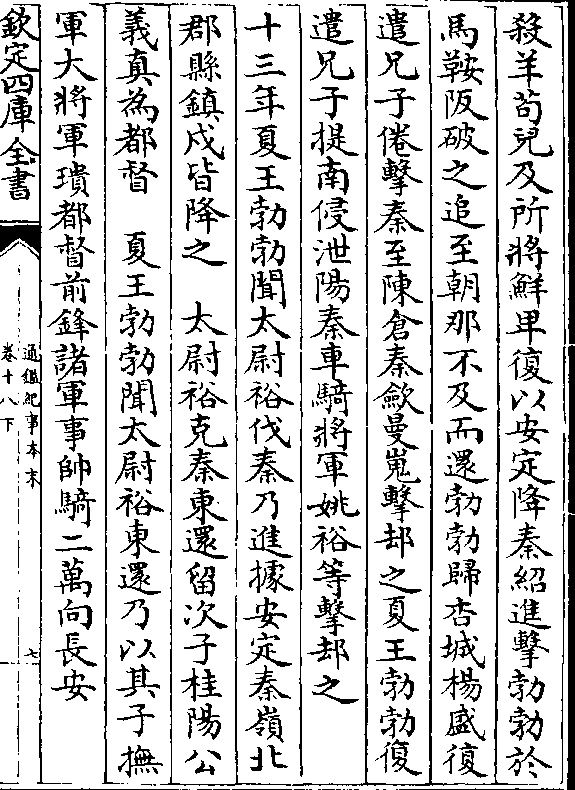 殺羊茍兒及所將鮮卑復以安定降秦紹進擊勃勃於
馬鞍阪破之追至朝那不及而還勃勃歸杏城楊盛復
遣兄子倦擊秦至陳倉秦歛曼嵬擊却之夏王勃勃復
遣兄子提南侵泄陽秦車騎將軍姚裕等擊却之
十三年夏王勃勃聞太尉裕伐秦乃進據安定秦嶺北
郡縣鎮戍皆降之　太尉裕克秦東還留次子桂陽公
義真為都督　夏王勃勃聞太尉裕東還乃以其子撫
軍大將軍璝都督前鋒諸軍事帥騎二萬向長安
欽定四庫全書
通鑑紀事本末
卷十八下
七